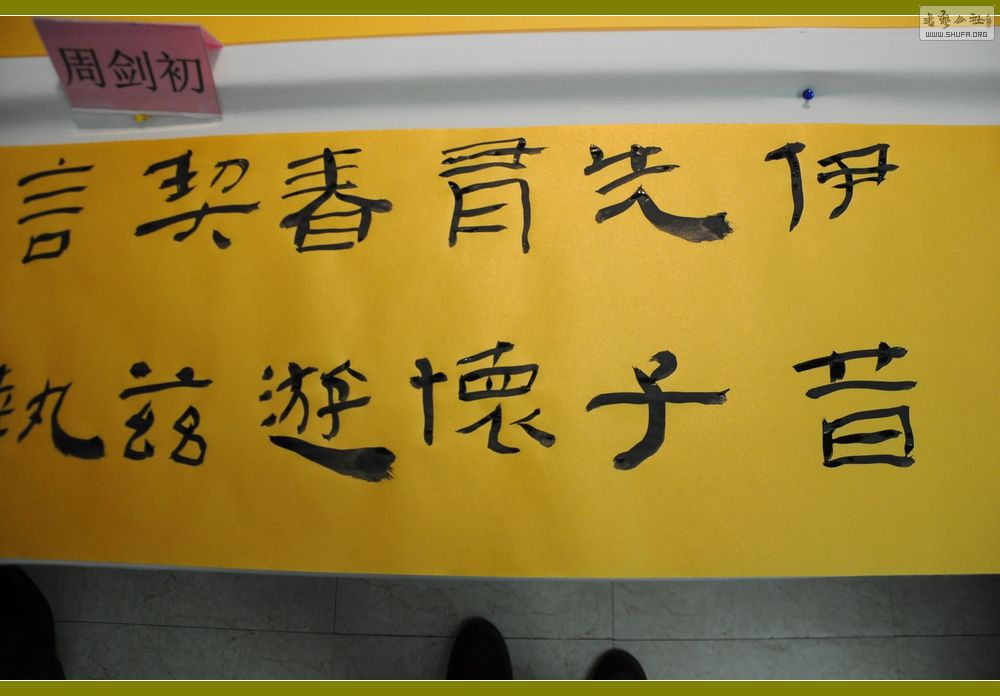 周剑初
伊昔
先子
有懷
春遊
契茲
言執
书艺公社
WWW.SHUFA.ORG